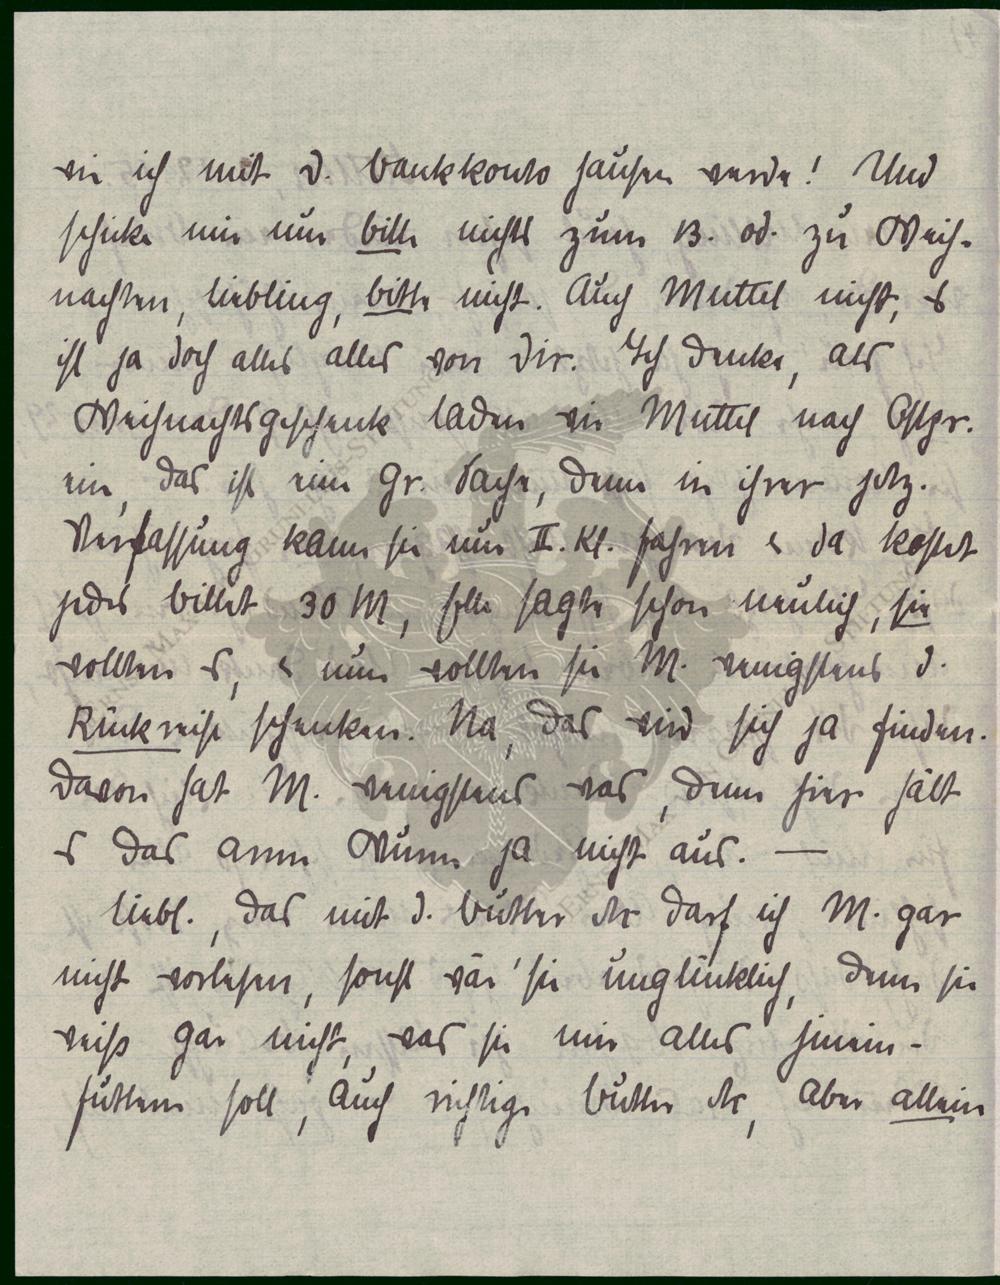 wie ich mit d. Bankkonto hausen werde! Und
schicke mir nun bitte nichts zum 13. od. zu Weih-
nachten, Liebling, bitte nicht. Auch Muttel nicht, es
ist ja doch alles alles von Dir. Ich denke, als
Weihnachtsgeschenk laden wir Muttel nach Ostpr.
ein, das ist eine gr. Sache, denn in ihrer jetz.
Verfassung kann sie nur II. Kl. fahren & da kostet
jedes Billet 30 M, Elle sagte schon neulich, sie
wollten es, & nun wollten sie M. wenigstens d.
Rückreise schenken. Na, das wird sich ja finden.
Davon hat M. wenigstens was, denn hier hält
es das arme Wurm ja nicht aus. —
Liebl., das mit d. Butter etc darf ich M. gar
nicht vorlesen, sonst wär' sie unglücklich, denn sie
weiß gar nicht, was sie mir alles hinein-
futtern soll, auch richtige Butter etc, aber allein